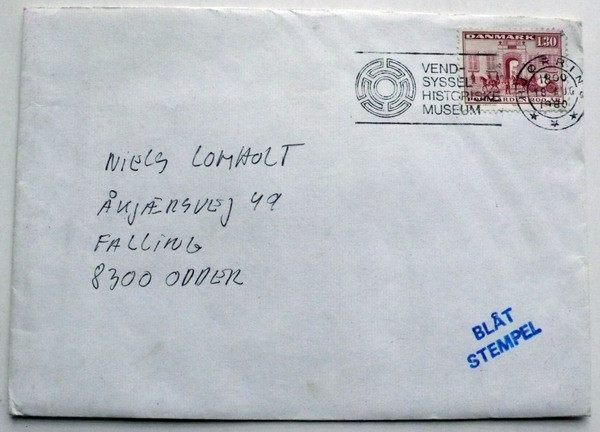 DANMARK 130
VEND-
SYSSEL
HISTORISKE
MUSEUM
HJØRRING
1800
1980
NIELS LOMHOLT
ÅKJÆRSVEJ 49
FALLING
8300 ODDER
BLÅT
STEMPEL